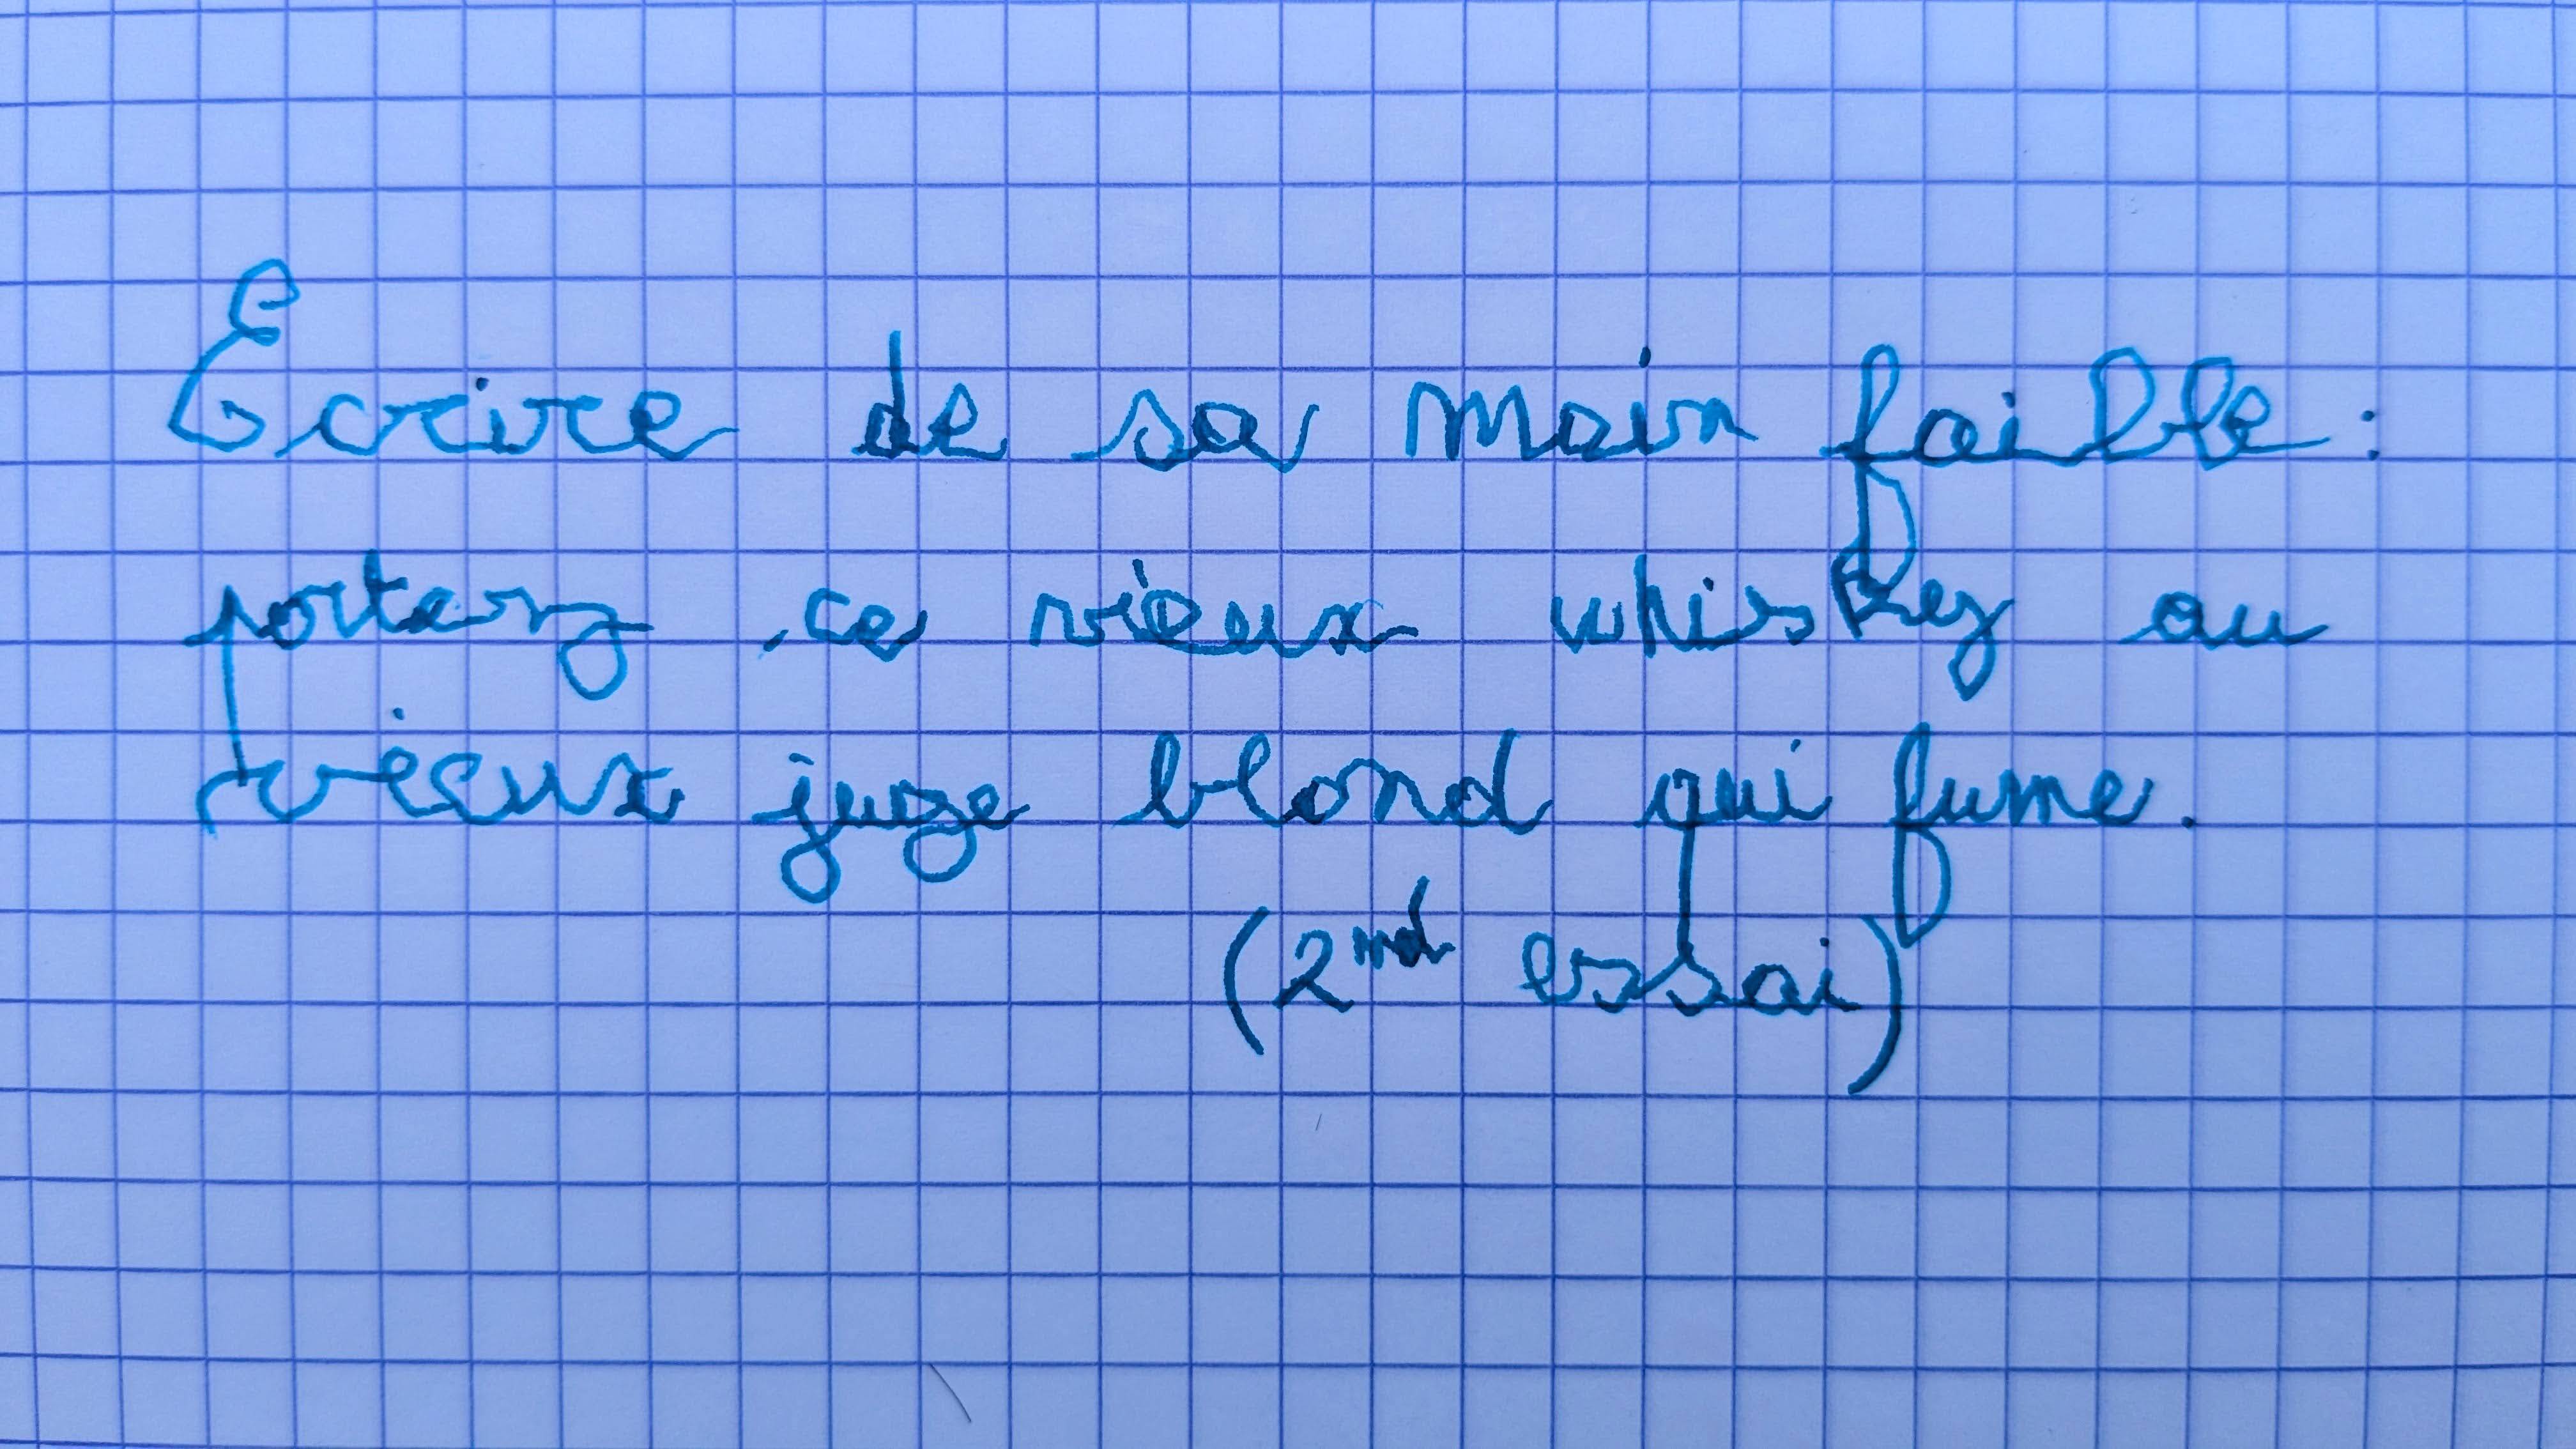 Ecrire de sa main faible :
portez ce vieux whiskey au
vieux juge blond qui fume.
(2nd essai)